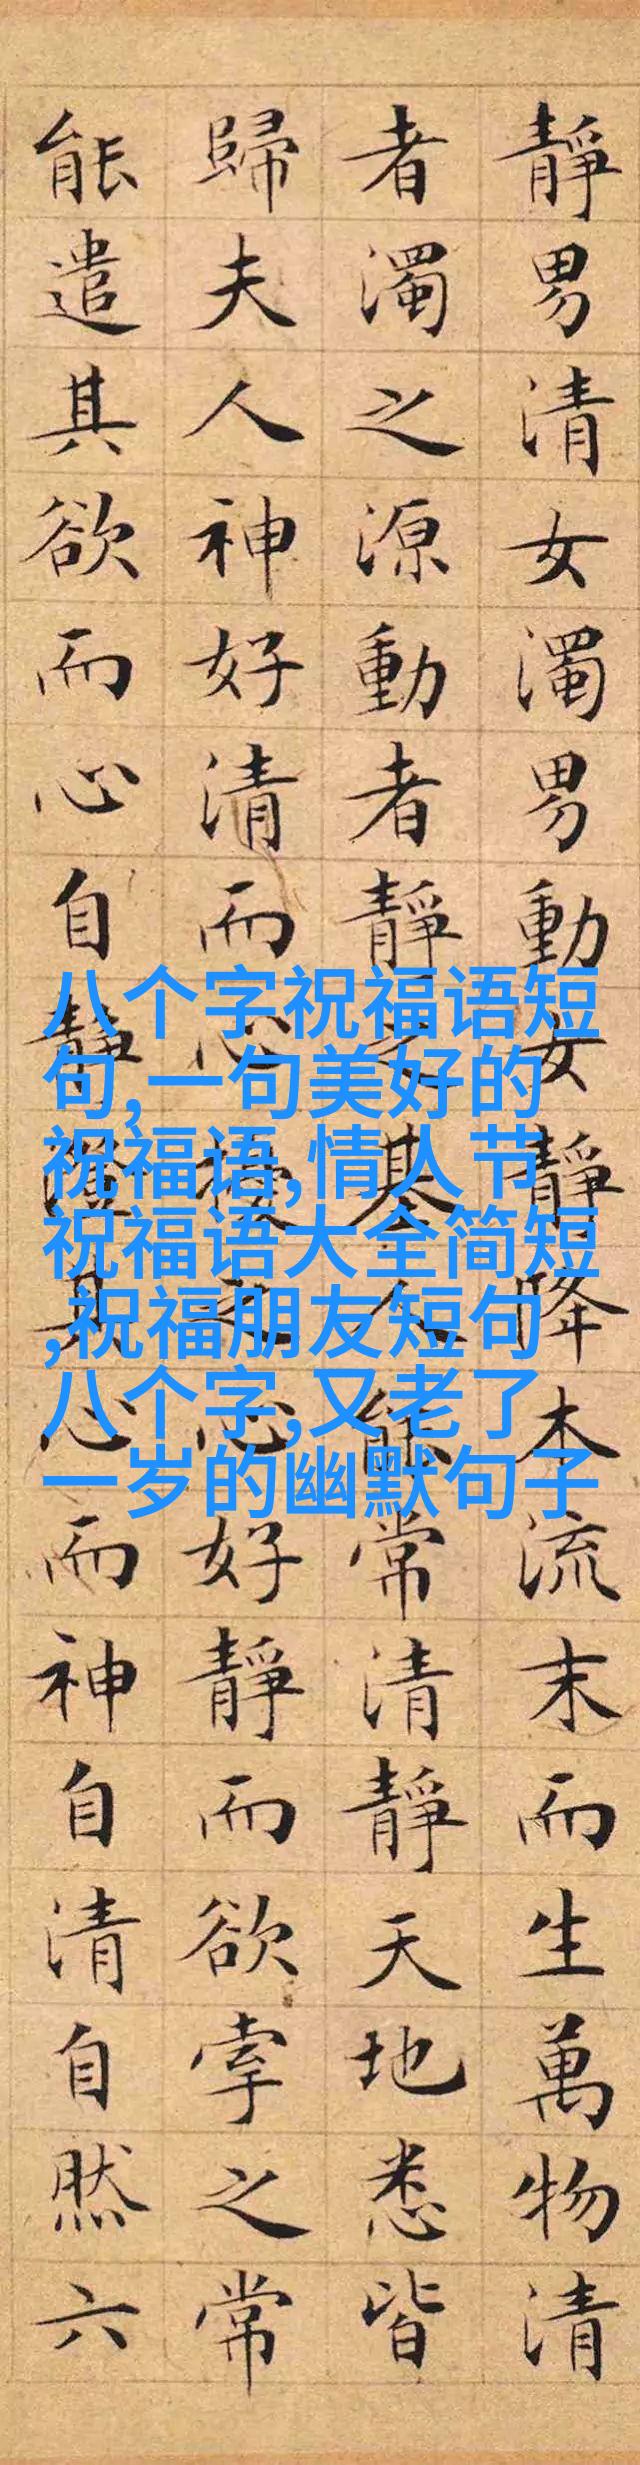 靜男清女濁男動女靜降本流末而生萬物清
者濁之源動者靜之基人能常清靜天地悉皆
歸夫人神好清而心擾之心好靜而欲牽之常
能遣其欲而心自靜澄其心而神自清自然六
八个字祝福语短
句,一句美好的
祝福语,情人节
祝福语大全简短
,祝福朋友短句
八个字,又老了
一岁的幽默句子